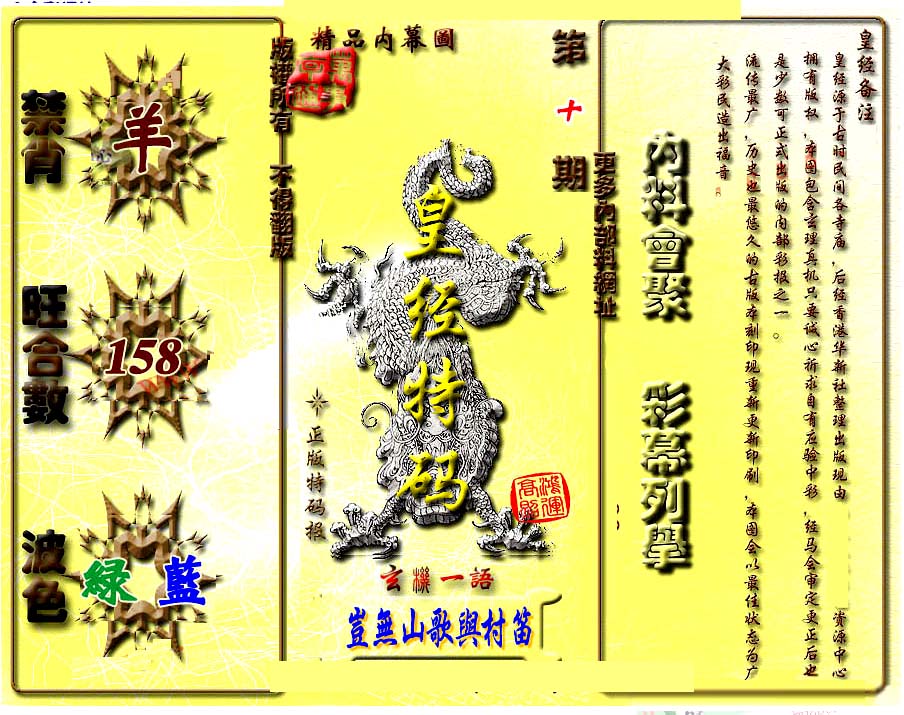 精品内幕圖
第十期
版權所有 不得翻版
更多内部料網址
禁肖
羊
旺合數
158
波色
緑 藍
皇经特码
正版特码报
鴻運高照
玄機一語
豈無山歌與村笛
内料會聚 彩幕列舉
皇经备注
皇经源于古时民间各寺庙，后经香港华新社整理出版现由 资源中心
拥有版权，本图包含玄理真机只要诚心祈求自有应验中彩，经马会审定更正后也
是少数可正式出版的内部彩报之一。
流传最广，历史也最悠久的古版本刻印现重新更新印刷，本图会以最佳状态为广
大彩民造出福音